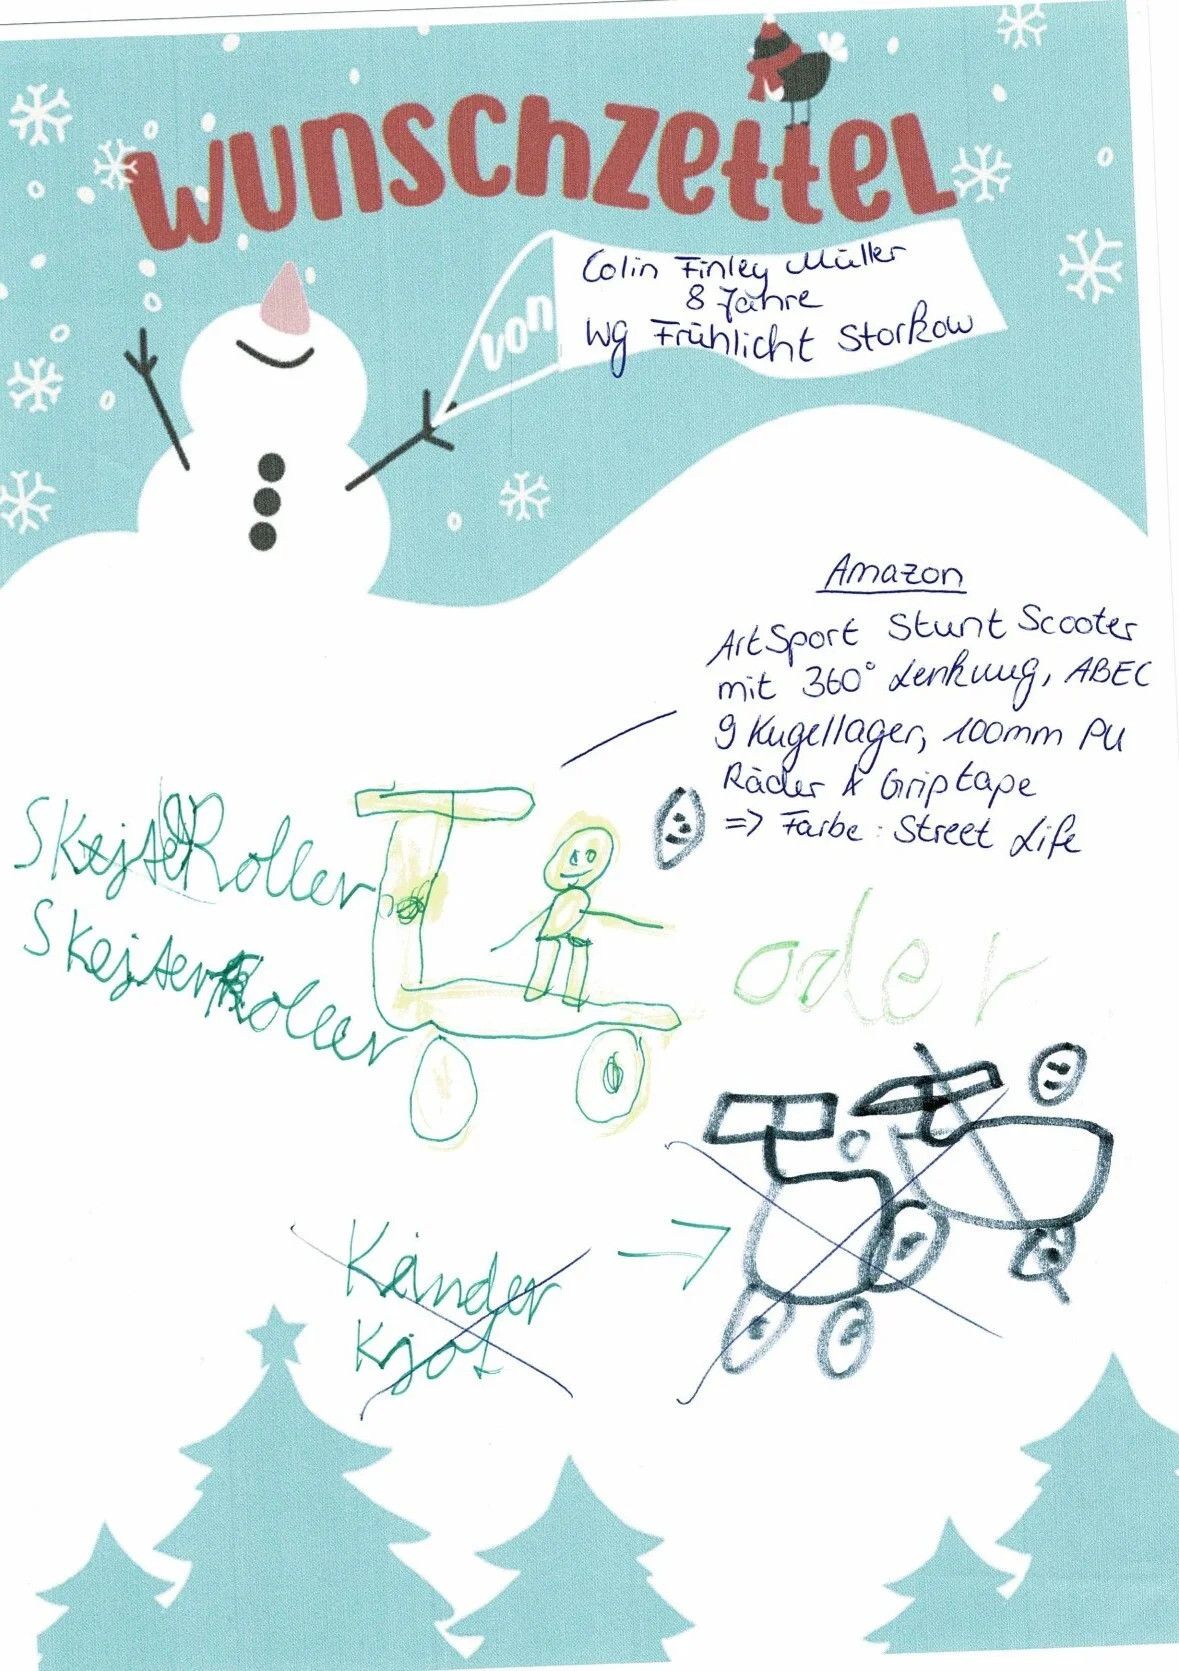 WUNSCHZETTEL
von
Colin Finley Müller
8 Jahre
WG Frühlicht Storkow
Amazon
ArtSport Stunt Scooter
mit 360° Lenkung, ABEC
9 Kugellager, 100mm PU
Räder & Griptape
=> Farbe: Street Life
SkejterRoller
SkejterRoller
oder
Kinder
Kjot